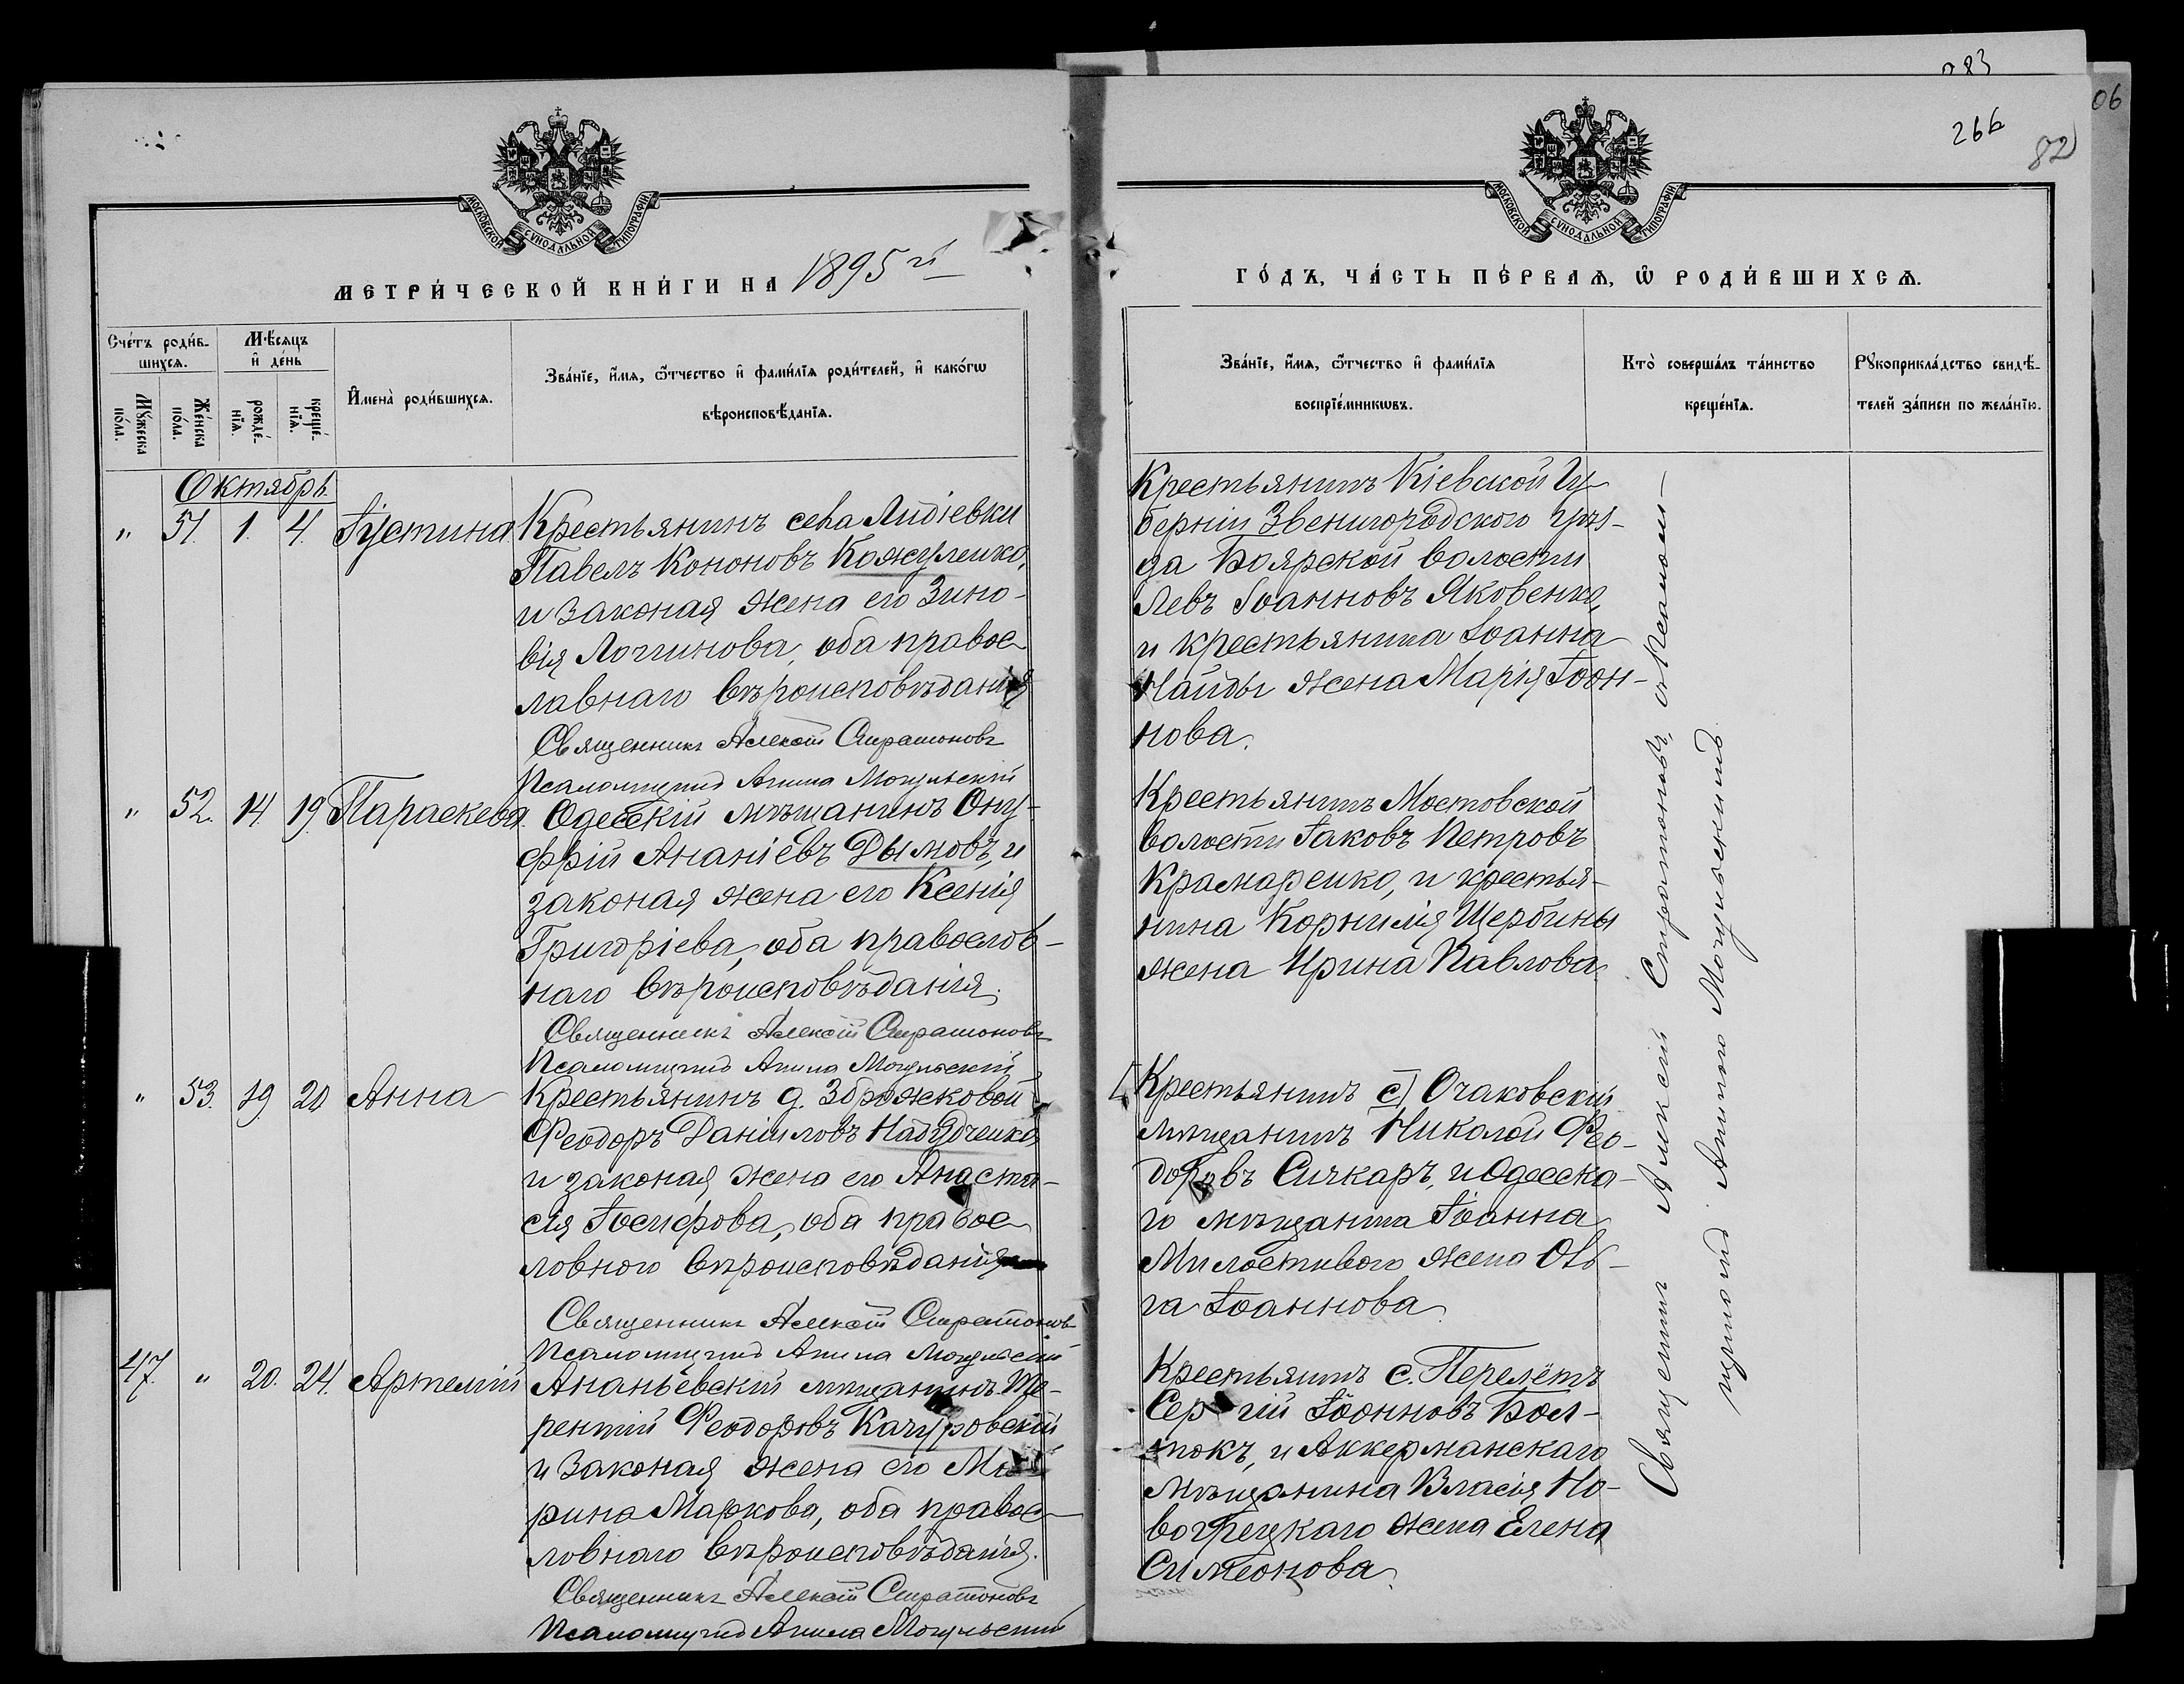 283
06
266
82
МОСКОВСКОЙ СѴНОДАЛЬНОЙ ТИПОГРАФІИ
МЕТРИ́ЧЕСКОЙ КНИ́ГИ НА 1895 й
Сче́тъ роди́в-
шихсѧ.
Мѣ́сѧцъ
и҆ де́нь
Мꙋ́жеска
по́ла.
Же́нска
по́ла.
рожде́-
нїѧ.
креще́-
нїѧ.
И҆мена̀ роди́вшихсѧ.
Зва́нїе, и҆́мѧ, ѻ҆́тчество и҆ фами́лїѧ роди́телей, и҆ како́гѡ
вѣроисповѣ́данїѧ.
Октябрь
„ 51. 1. 4. Іустина
Крестьянинъ села Лидіевки
Павелъ Кононовъ Кожуленко,
и законая жена его Зино-
вія Логгинова, оба правос
лавнаго вѣроисповѣданія
Священникъ Алексій Стратоновъ
Псаломщикъ Могульскій
„ 52. 14. 19. Параскева.
Одесскій мѣщанинъ Ону-
фрій Ананіевъ Дымовъ, и
законая жена его Ксенія
Григоріева, оба православ-
наго вѣроисповѣданія.
Священникъ Алексій Стратоновъ
Псаломщикъ Могульскій
„ 53. 19. 20 Анна
Крестьянинъ д. Зброжковой
Феодоръ Даніиловъ
и законая жена его Анаста-
сія Іосифова, оба правос
лавного вѣроисповѣданія
Священникъ Алексій Стратоновъ
Псаломщикъ Могульскій
47. „ 20. 24. Артемій
Ананьевскій мѣщанинъ Те-
рентій Феодоровъ Качуровскій
и законая жена его Ма
рина Маркова, оба правос
лавнаго вѣроисповѣданія.
Священникъ Алексій Стратоновъ
Псаломщикъ Могульскій
МОСКОВСКОЙ СѴНОДАЛЬНОЙ ТИПОГРАФІИ
ГО́ДЪ, ЧА́СТЬ ПЕ́РВАѦ, Ѡ҆ РОДИ́ВШИХСѦ.
Зва́нїе, и҆́мѧ, ѻ҆́тчество и҆ фами́лїѧ
воспрїе́мникѡвъ.
Кто̀ соверша́лъ та́инство
креще́нїѧ.
Рꙋкоприкла́дство свидѣ́-
телей за́писи по жела́нїю.
Крестьянинъ Кіевской Гу
берніи Звенигородского уѣз-
да Боярской волости
Левъ Іоанновъ Яковенко,
и крестьянина Іоанна
Найды жена Марія Іоан-
нова.
Крестьянинъ Мостовской
волости Іаковъ Петровъ
Крамаренко, и крестья-
нина Корнилія Щербины
жена Ирина Павлова.
[Крестьянинъ с] Очаковскій
мѣщанинъ Николай Фео-
доровъ Сичкаръ, и Одесска-
го мѣщанина Іоанна
Милостивого жена Оль-
га Іоаннова.
Крестьянинъ с. Перелётъ
Сергій Іоанновъ
и Аккерманскаго
мѣщанина Власія Но-
вогрецкаго жена Елена
Симеонова.
Священникъ Алексій Стратоновъ, и Псалом-
щикъ Могульскій